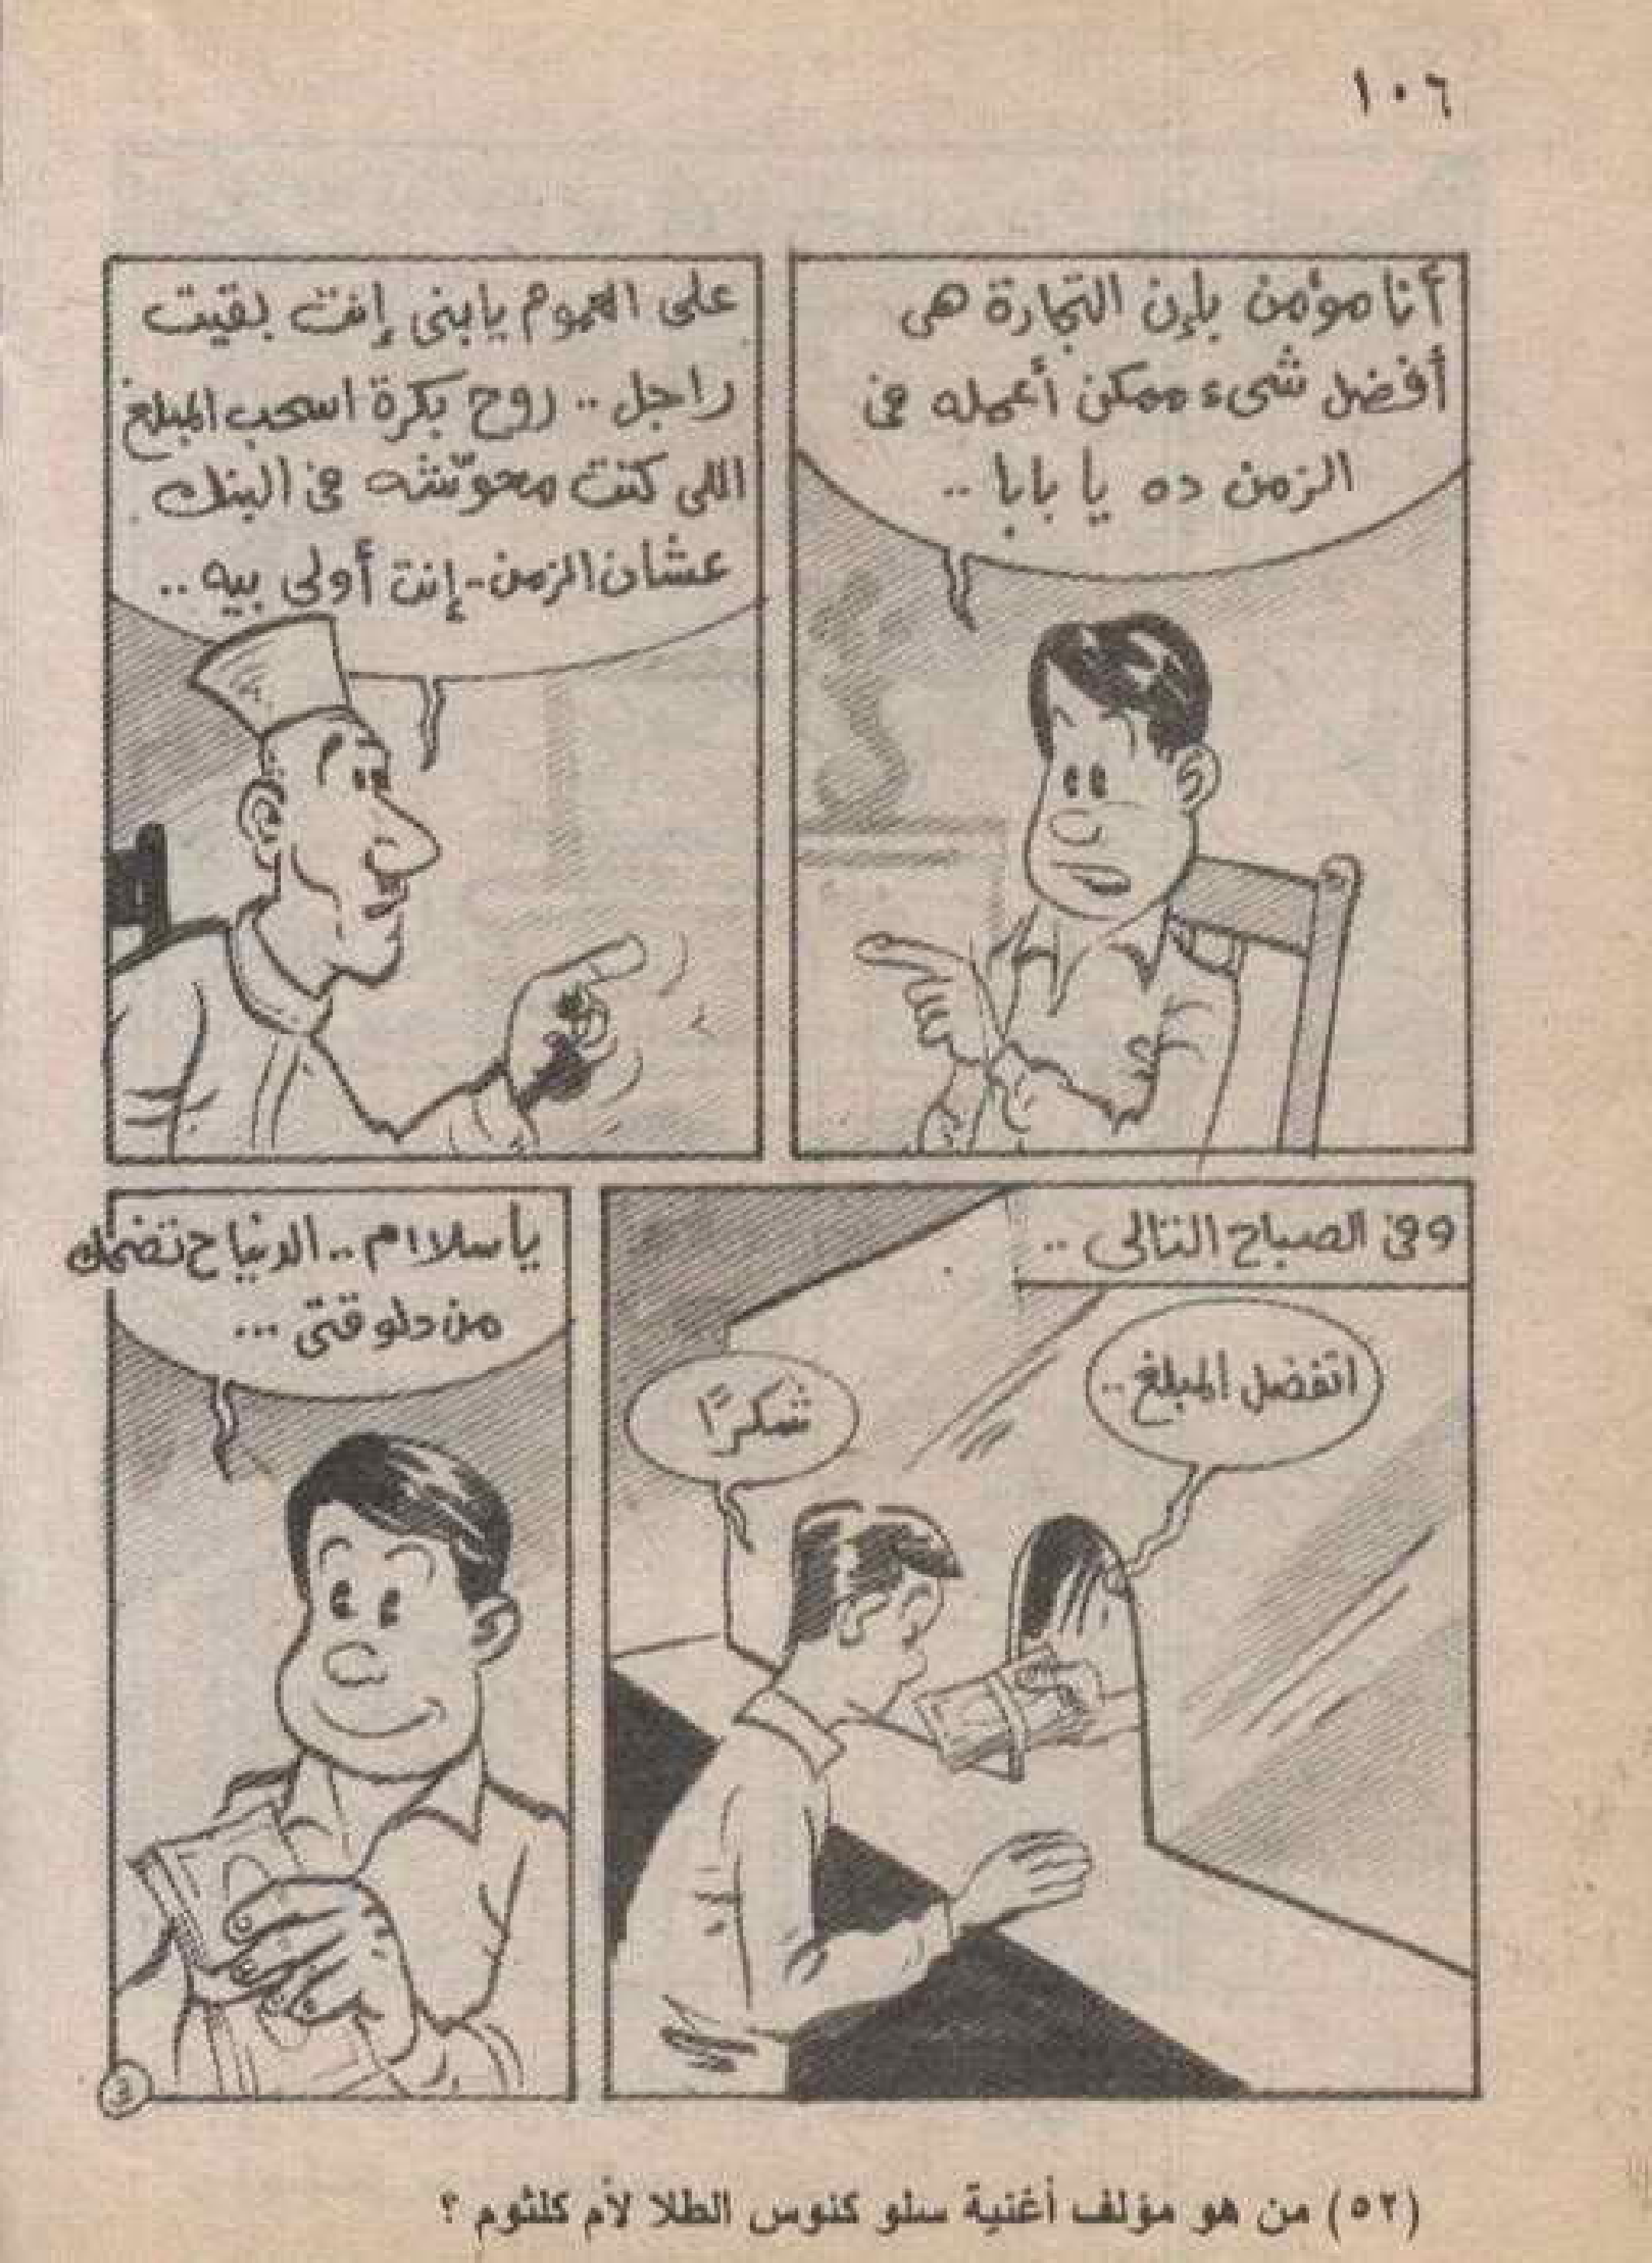 ١٠٦
أنا مؤمن بإن التجارة هى
أفضل شىء ممكن أعمله فى
الزمن ده يا بابا ..
على العموم يابنى إنت بقيت
راجل .. روح بكرة اسحب المبلغ
اللى كنت محوّشه فى البنك
عشان الزمن - إنت أولى بيه ..
وفى الصباح التالى ..
اتفضل المبلغ ..
شكرًا
ياسلاام .. الدنيا ح تضحك
من دلوقتى ...
(٥٢) من هو مؤلف أغنية سلو كنوس الطلا لأم كلثوم ؟